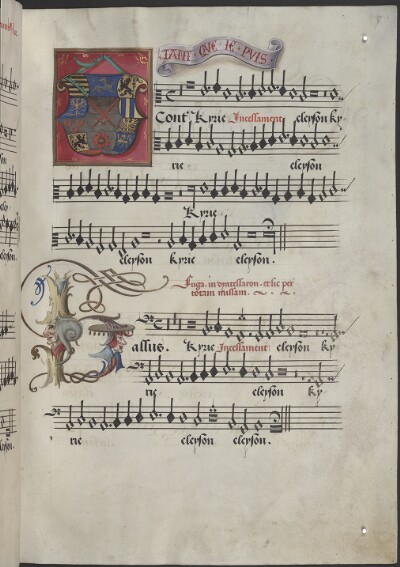 TANT QVE IE PVIS
Cont' Kyrie Incessament eleyson ky
rie eleyson
Kyrie
eleyson kyrie eleyson.
Fuga in dyatessaron et sic per
totam missam.
assus. Kyrie Incessament eleyson ky
rie eleyson ky
rie eleyson eleyson.